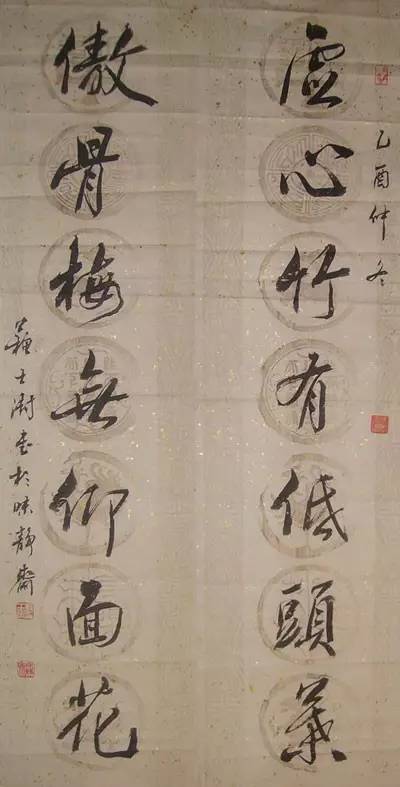 乙酉仲冬
虛心竹有低頭葉
傲骨梅無仰面花
蘇士澍書於味靜齋